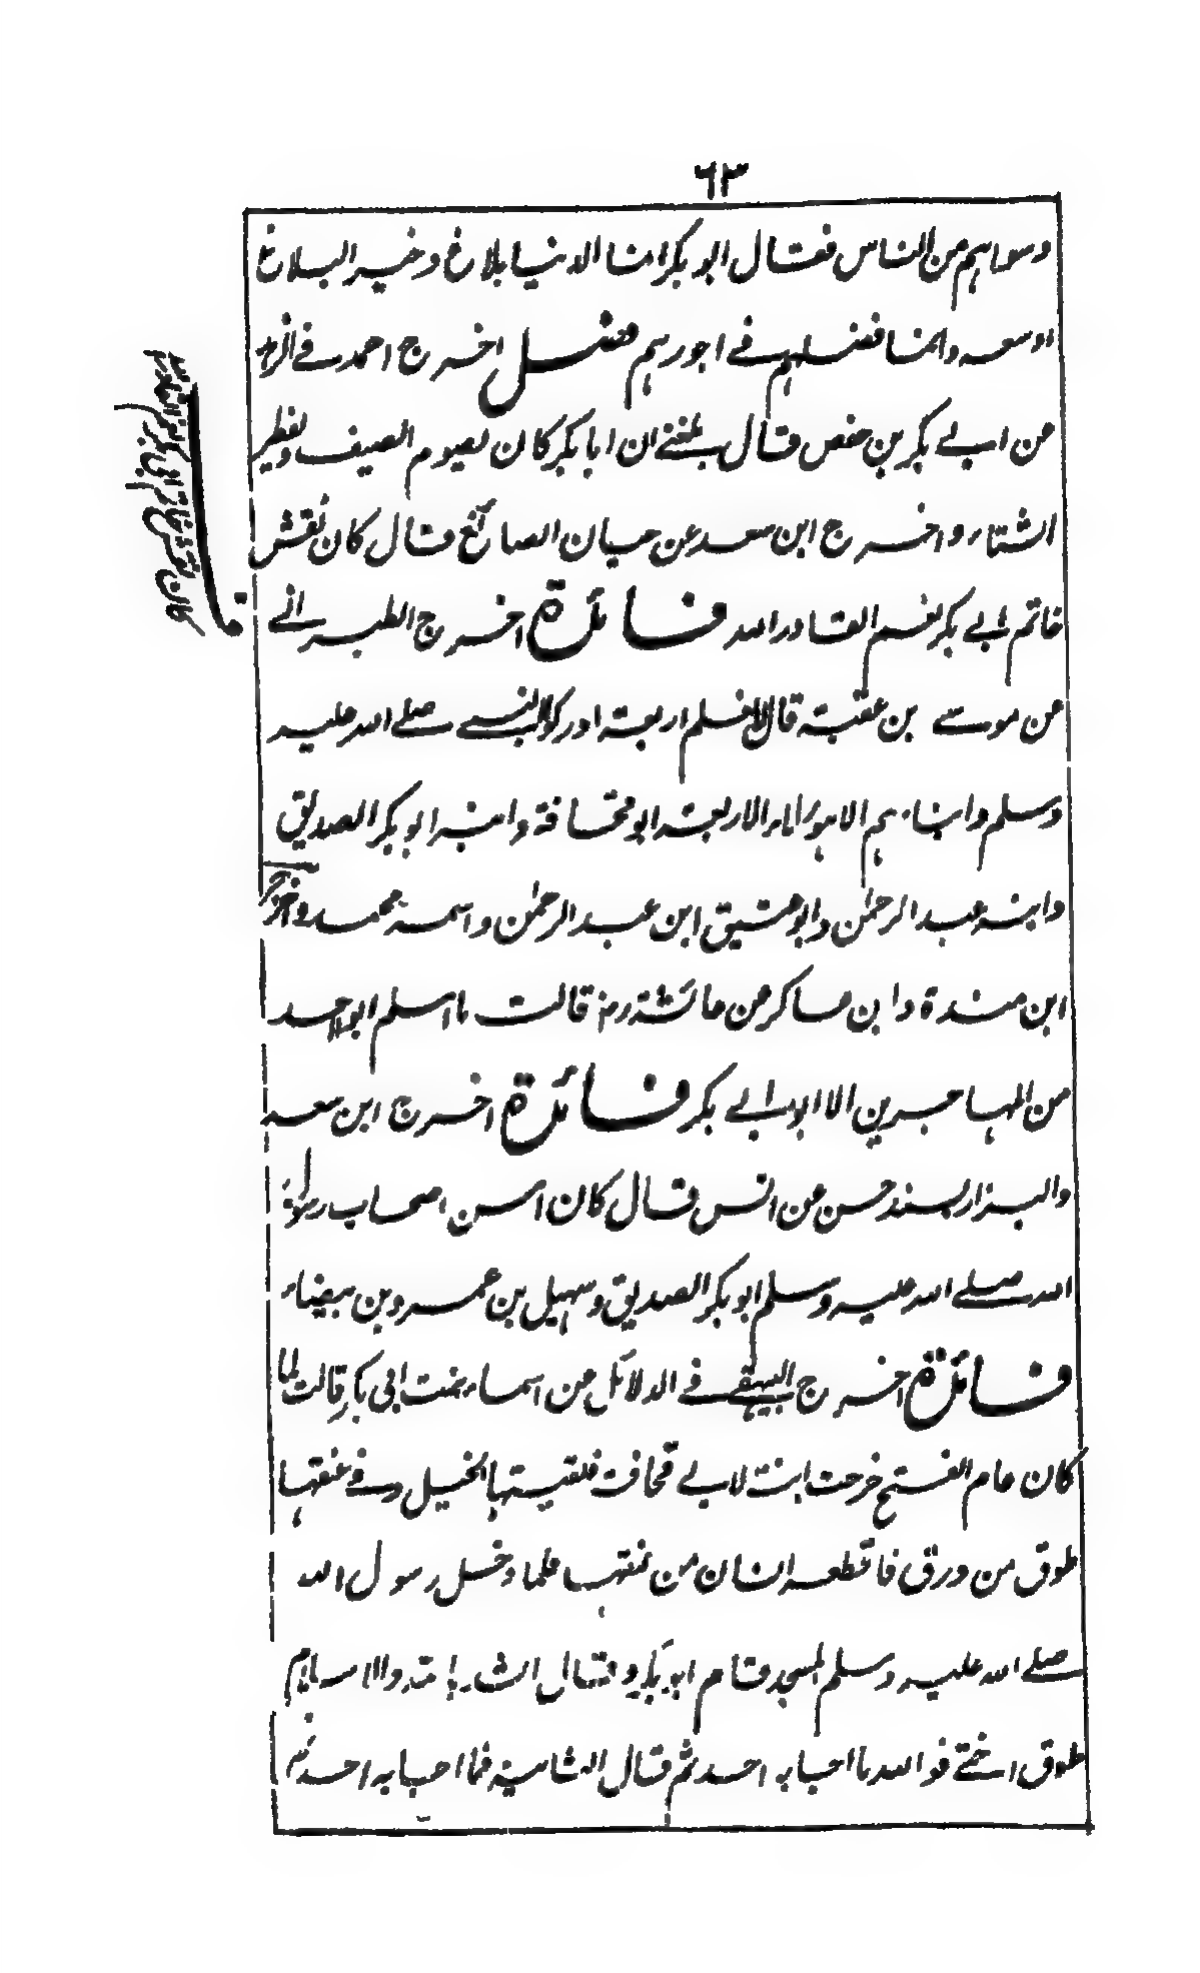 ٦٣
وسواہم من الناس فقال ابو بكر انما الدنيا بلاغ وخير البلاغ
اوسعه وانما فضلہم فے اجورہم فصل اخرج احمد فے الزہد
عن ابے بكر بن حفص قال بلغنے ان ابا بكر كان يصوم الصيف ويفطر
الشتاء واخرج ابن سعد عن حيان الصائغ قال كان نقش
خاتم ابے بكر نعم القادر الله فائدة اخرج الطبرانے
عن موسے بن عقبة قال لا نعلم اربعة ادركوا النبے صلے الله عليه
وسلم وابناءہم الا ہؤلاء الاربعة ابو قحافة وابنه ابو بكر الصديق
وابنه عبد الرحمٰن وابو عتيق ابن عبد الرحمٰن واسمه محمد واخرج
ابن مندة وابن عساكر عن عائشة رض قالت ما اسلم ابو احد
من المہاجرين الا ابو ابے بكر فائدة اخرج ابن سعد
والبزار بسند حسن عن انس قال كان اسن اصحاب رسول
الله صلے الله عليه وسلم ابو بكر الصديق وسہيل بن عمرو بن بيضاء
فائدة اخرج البيہقے فے الدلائل عن اسماء بنت ابی بكر قالت لما
كان عام الفتح خرجت ابنة لابے قحافة فلقيتہا الخيل وفے عنقہا
طوق من ورق فاقتطعه انسان من عنقہا فلما دخل رسول الله
صلے الله عليه وسلم المسجد قام ابو بكر وقال انشد بالله والاسلام
طوق اختے فوالله ما اجابه احد ثم قال الثانية فما اجابه احد ثم